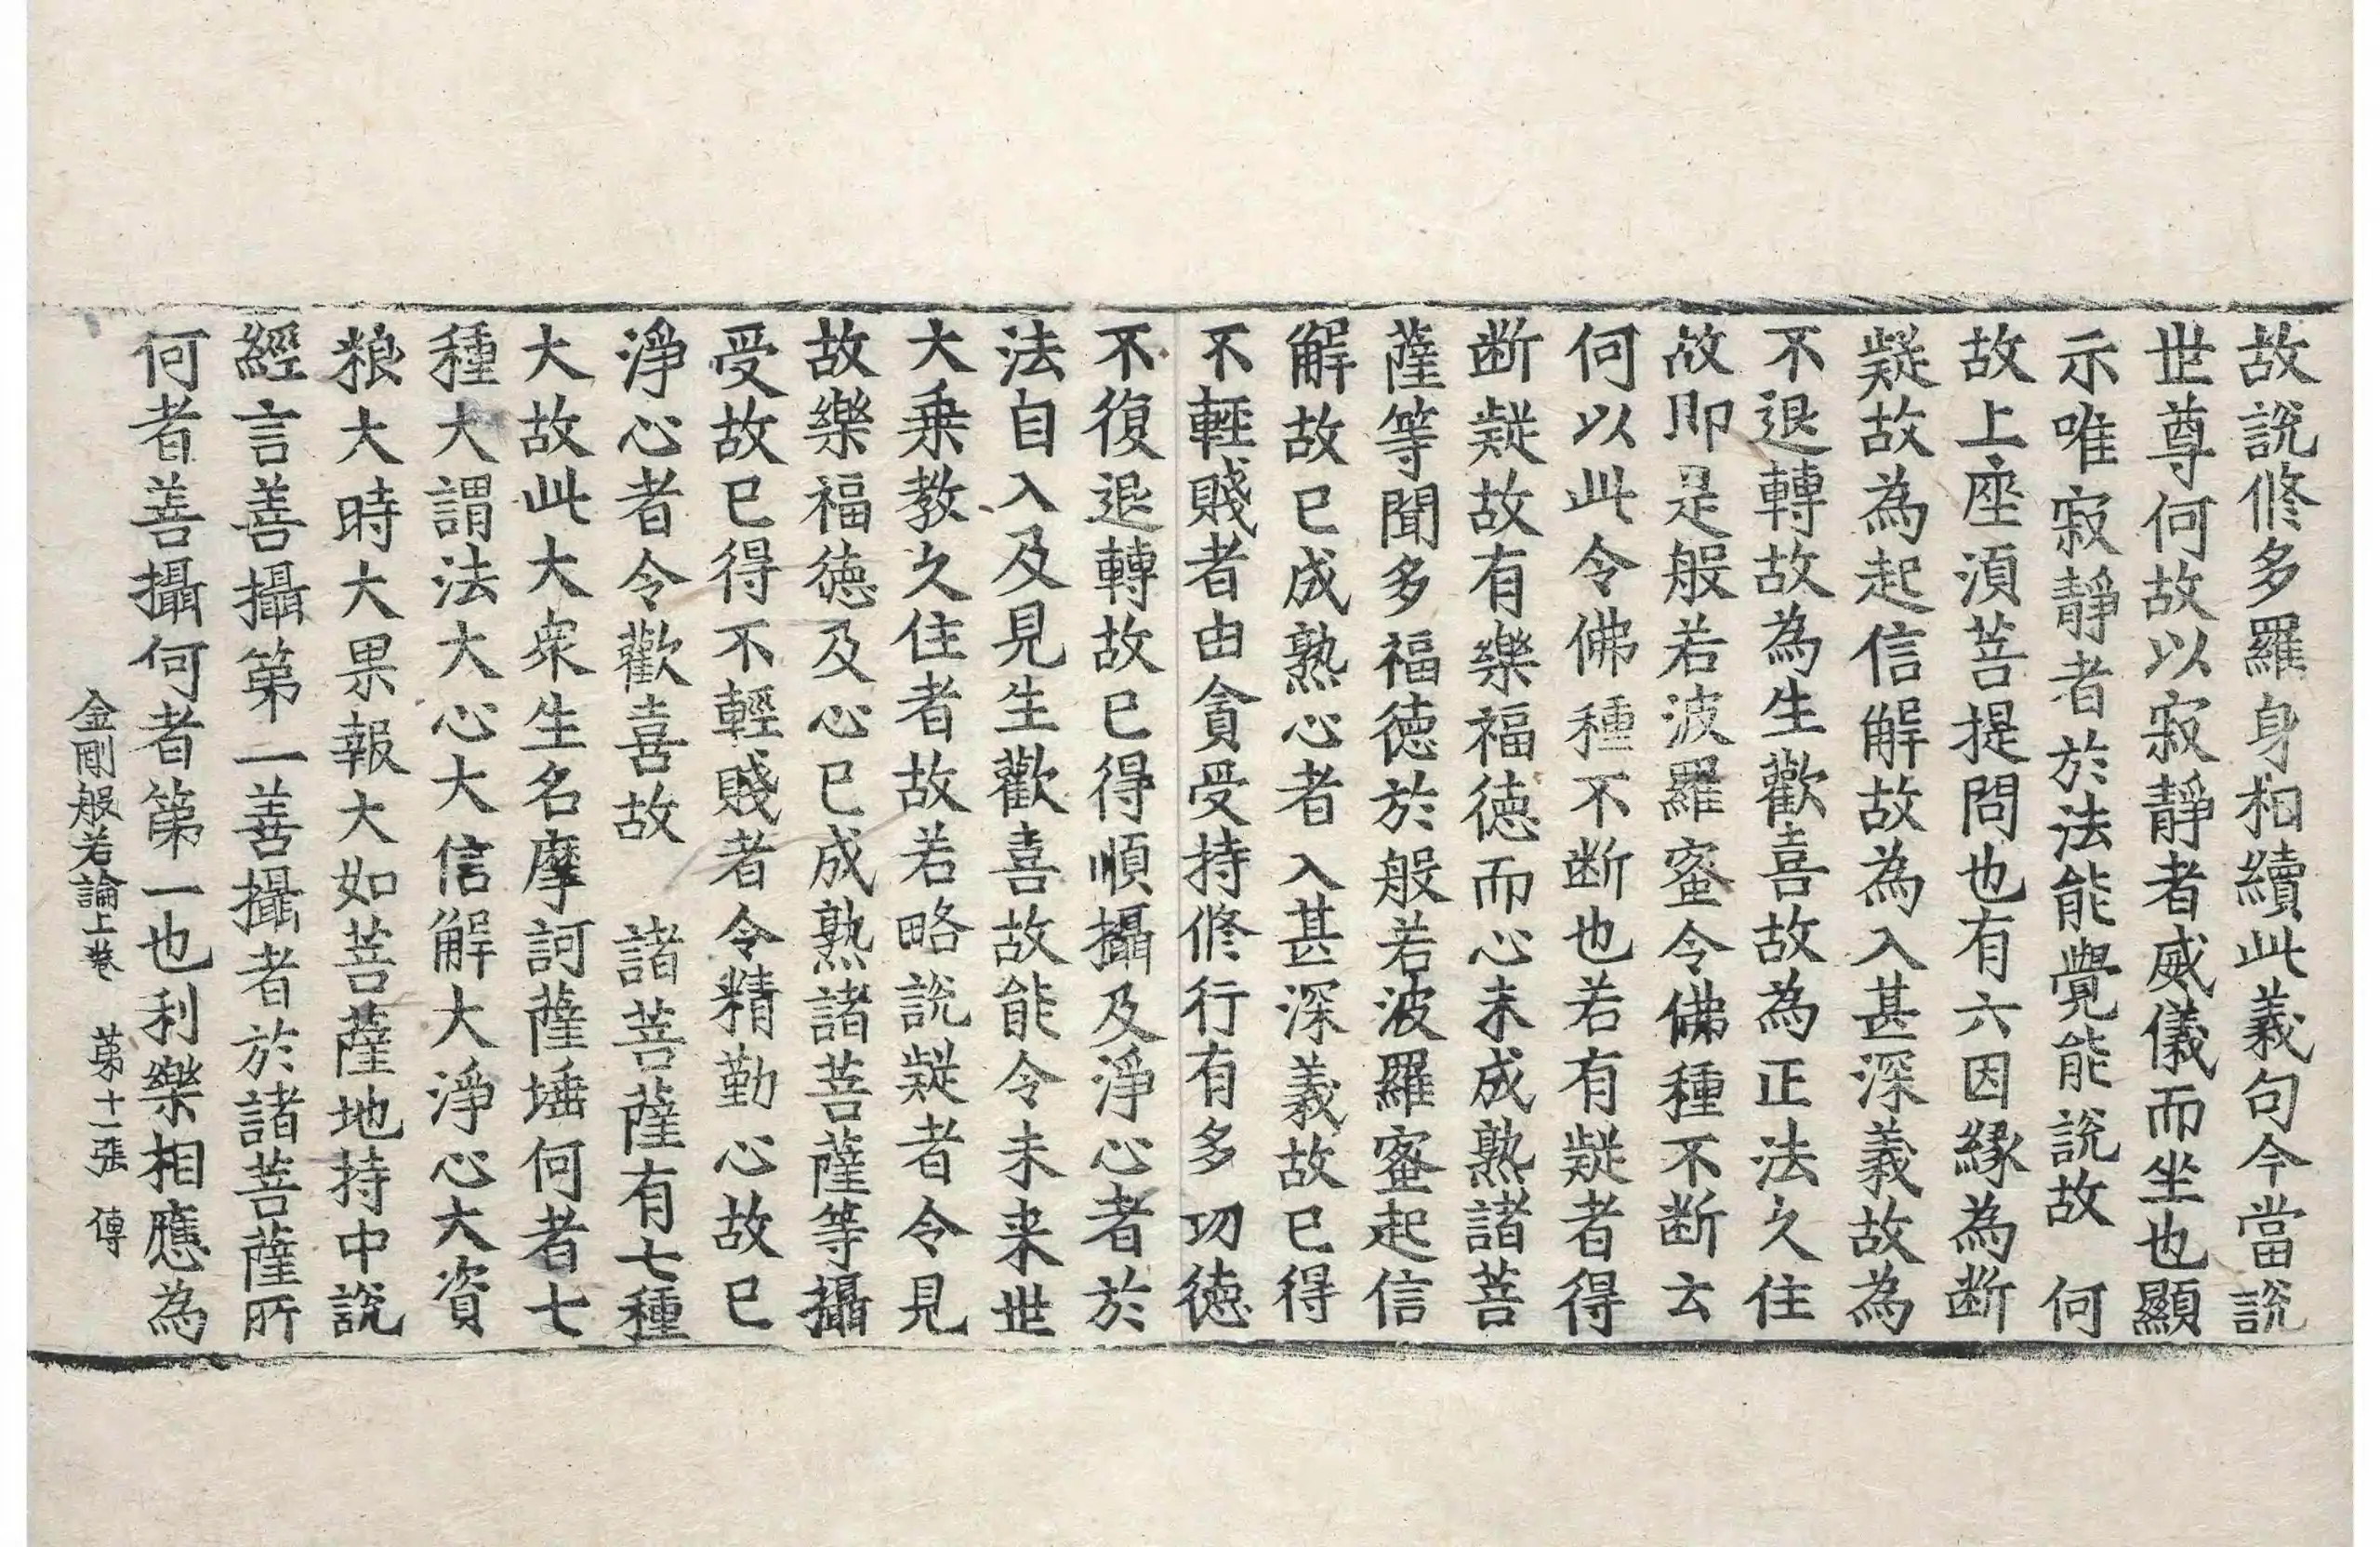 故說修多羅身相續此義句今當說
世尊何故以寂靜者威儀而坐也顯
示唯寂靜者於法能覺能說故　何
故上座湏菩提問也有六因緣為断
疑故為起信解故為入甚深義故為
不退轉故為生歡喜故為正法久住
故即是般若波羅蜜令佛種不断云
何以此令佛種不断也若有疑者得
断疑故有樂福徳而心未成熟諸菩
薩等聞多福徳於般若波羅蜜起信
解故已成熟心者入甚深義故已得
不輕賤者由貪受持修行有多功徳
不復退轉故已得順攝及淨心者於
法自入及見生歡喜故能令未来世
大乗教久住者故若略説疑者令見
故樂福徳及心已成熟諸菩薩等攝
受故已得不輕賤者令精勤心故已
淨心者令歡喜故　諸菩薩有七種
大故此大衆生名摩訶薩埵何者七
種大謂法大心大信解大淨心大資
粮大時大果報大如菩薩地持中説
經言善攝第一善攝者於諸菩薩所
何者善攝何者第一也利樂相應為
金剛般若論上卷　第十一張　傳